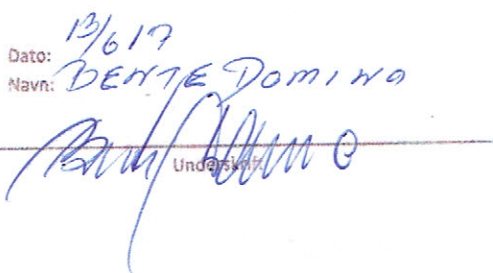 Dato: 13/6 17
Navn: BENTE DOMINO
Underskrift